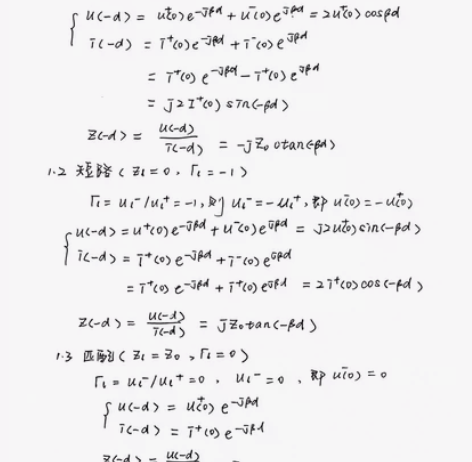 u(-d) = u⁺(0)e^{-jβd} + u⁻(0)e^{jβd} = 2u⁺(0)cosβd
i(-d) = i⁺(0)e^{-jβd} + i⁻(0)e^{jβd}
= i⁺(0)e^{-jβd} - i⁺(0)e^{jβd}
= j2I⁺(0)sin(-βd)
Z(-d) = u(-d)/i(-d) = -jZ₀otan(-βd)
1.2 短路(Zₗ=0, Γₗ=-1)
Γₗ=uₗ⁻/uₗ⁺=-1,则 uₗ⁻=-uₗ⁺,即 u⁻(0)=-u⁺(0)
u(-d) = u⁺(0)e^{-jβd} + u⁻(0)e^{jβd} = j2u⁺(0)sin(-βd)
i(-d) = i⁺(0)e^{-jβd} + i⁻(0)e^{jβd}
= i⁺(0)e^{-jβd} + i⁺(0)e^{jβd} = 2i⁺(0)cos(-βd)
Z(-d) = u(-d)/i(-d) = jZ₀tan(-βd)
1.3 匹配(Zₗ=Z₀, Γₗ=0)
Γₗ=uₗ⁻/uₗ⁺=0, uₗ⁻=0, 即 u⁻(0)=0
u(-d) = u⁺(0)e^{-jβd}
i(-d) = i⁺(0)e^{-jβd}
Z(-d) = u(-d)